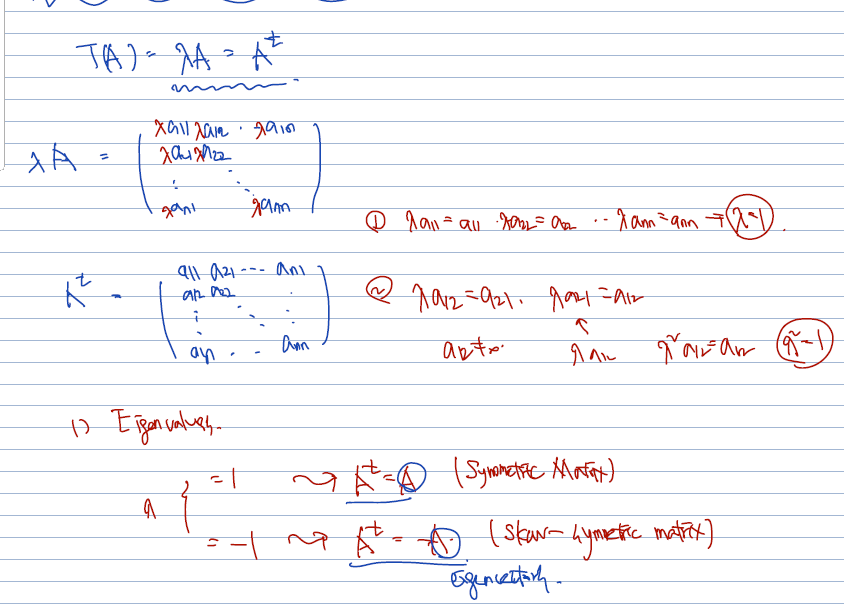 T(A) = λA = A^t
λA = ( λa11 λa12 · λa1n
λa21 λa22
⋮ ⋱
λan1 λann )
① λa11 = a11 · λa22 = a22 ·· λann = ann → λ=1.
A^t = ( a11 a21 --- an1
a12 a22 ⋮
⋮ ⋱ ⋮
a1n · - ann )
② λa12 = a21. λa21 = a12
↑
a12 ≠ 0. λa12 λ²a12 = a12 λ²=1
1) Eigenvalues.
λ { = 1 ⇝ A^t = A (Symmetric Matrix)
= -1 ⇝ A^t = -A. (Skew-symmetric matrix)